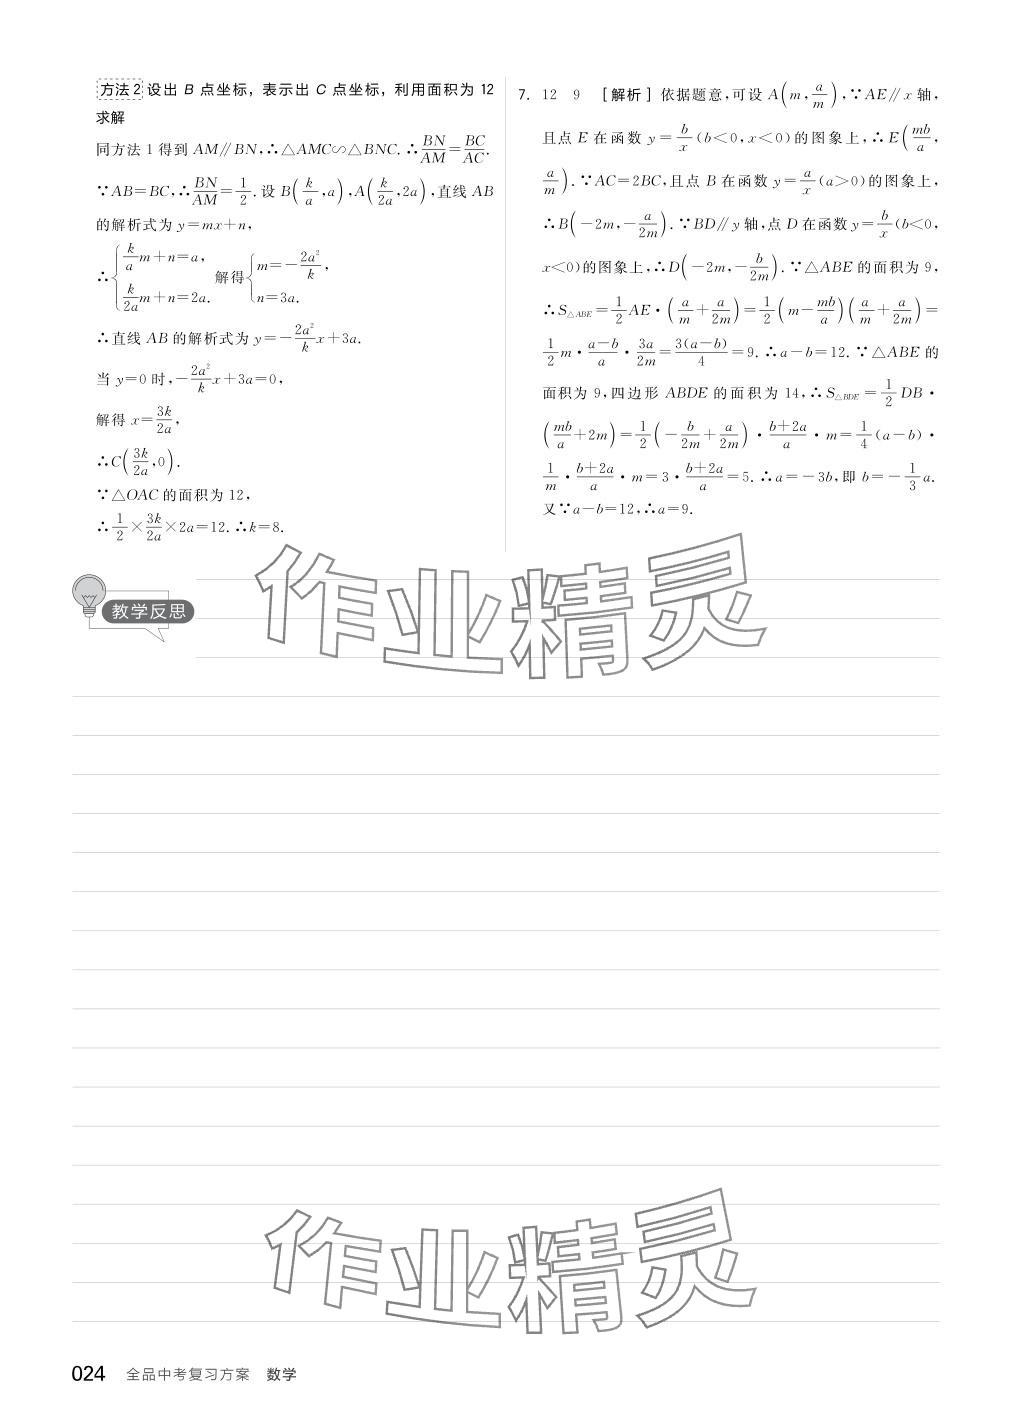 方法2 设出 B 点坐标，表示出 C 点坐标，利用面积为 12
求解
同方法 1 得到 AM∥BN,∴△AMC∽△BNC.∴BN/AM=BC/AC.
∵AB=BC,∴BN/AM=1/2.设 B(k/a,a),A(k/2a,2a),直线 AB
的解析式为 y=mx+n,
∴{k/a m+n=a, k/2a m+n=2a. 解得{m=-2a²/k, n=3a.
∴直线 AB 的解析式为 y=-2a²/k x+3a.
当 y=0 时,-2a²/k x+3a=0,
解得 x=3k/2a,
∴C(3k/2a,0).
∵△OAC 的面积为 12,
∴1/2×3k/2a×2a=12.∴k=8.
7. 12 9 [解析] 依据题意,可设 A(m,a/m),∵AE∥x 轴,
且点 E 在函数 y=b/x(b<0,x<0)的图象上,∴E(mb/a,
a/m).∵AC=2BC,且点 B 在函数 y=a/x(a>0)的图象上,
∴B(-2m,-a/2m).∵BD∥y 轴,点 D 在函数 y=b/x(b<0,
x<0)的图象上,∴D(-2m,-b/2m).∵△ABE 的面积为 9,
∴S△ABE=1/2AE·(a/m+a/2m)=1/2(m-mb/a)(a/m+a/2m)=
1/2m·a-b/a·3a/2m=3(a-b)/4=9.∴a-b=12.∵△ABE 的
面积为 9,四边形 ABDE 的面积为 14,∴S△BDE=1/2DB·
(mb/a+2m)=1/2(-b/2m+a/2m)·b+2a/a·m=1/4(a-b)·
1/m·b+2a/a·m=3·b+2a/a=5.∴a=-3b,即 b=-1/3a.
又∵a-b=12,∴a=9.
作业精灵
教学反思
作业精灵
024 全品中考复习方案 数学